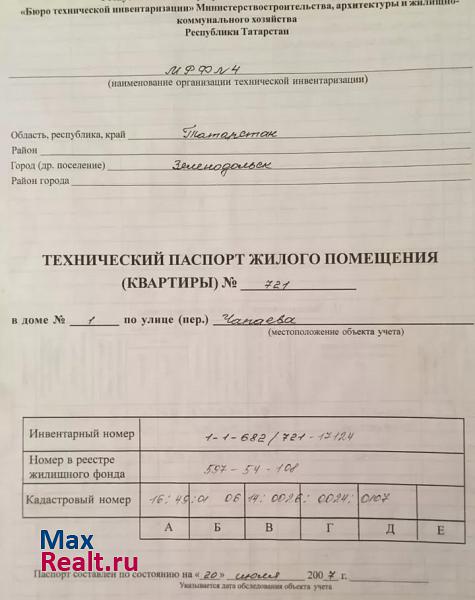 «Бюро технической инвентаризации» Министерствостроительства, архитектуры и жилищно-
коммунального хозяйства
Республики Татарстан
МРФ №4
(наименование организации технической инвентаризации)
Область, республика, край Татарстан
Район
Город (др. поселение) Зеленодольск
Район города
ТЕХНИЧЕСКИЙ ПАСПОРТ ЖИЛОГО ПОМЕЩЕНИЯ
(КВАРТИРЫ) № 721
в доме № 1 по улице (пер.) Чапаева
(местоположение объекта учета)
Инвентарный номер 1-1-682/721-17124
Номер в реестре жилищного фонда 597-54-108
Кадастровый номер 16:49:01 06 14:0026:0024:0107
А Б В Г Д Е
Max
Realt.ru
Паспорт составлен по состоянию на «20» июля 2007 г.
Указывается дата обследования объекта учета